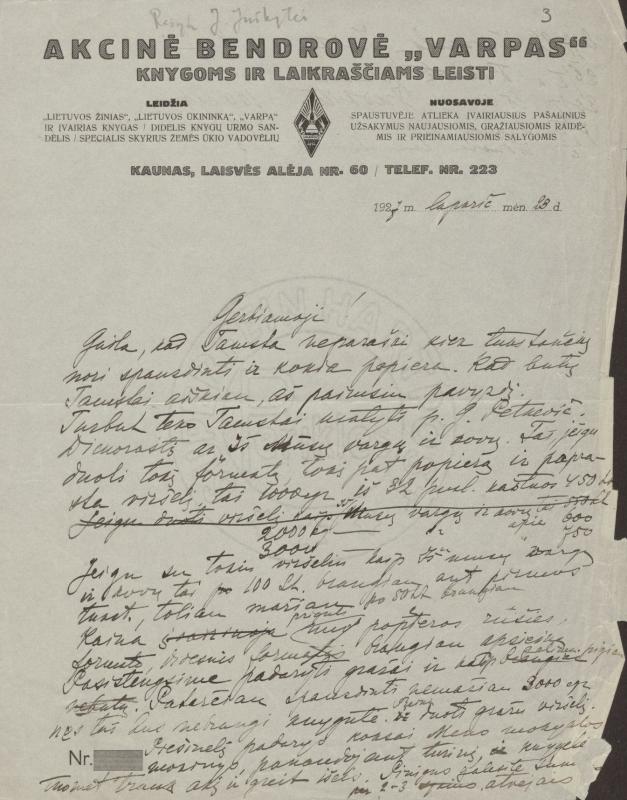 3
AKCINĖ BENDROVĖ „VARPAS“
KNYGOMS IR LAIKRAŠČIAMS LEISTI
LEIDŽIA
„LIETUVOS ŽINIAS“, „LIETUVOS ŪKININKĄ“, „VARPĄ“
IR ĮVAIRIAS KNYGAS / DIDELIS KNYGŲ URMO SAN-
DĖLIS / SPECIALIS SKYRIUS ŽEMĖS ŪKIO VADOVĖLIŲ
NUOSAVOJE
SPAUSTUVĖJE ATLIEKA ĮVAIRIAUSIUS PAŠALINIUS
UŽSAKYMUS NAUJAUSIOMIS, GRAŽIAUSIOMIS RAIDĖ-
MIS IR PRIEINAMIAUSIOMIS SĄLYGOMIS
KAUNAS, LAISVĖS ALĖJA NR. 60 / TELEF. NR. 223
1927 m. lapkrič mėn. 23 d.
Gerbiamoji!
Gaila, kad Tamsta neparašei kiek tūkstančių
nori spausdinti ir kokia popiera. Kad būtų
Tamstai aiškiau, aš paimsiu pavyzdį.
Turbūt teko Tamstai matyti p. G. Petkevič.
Dienoraštį ar Iš Mūsų vargų ir kovų. Tai jeigu
duoti tokį formatą, tokį pat popierą ir papra-
stą viršelį tai 1000 egz. iš 32 pusl. kaštuos 450 lit
2000 600
3000 " " apie 750
Jeigu su tokiu viršeliu kaip Iš mūsų vargų
ir kovų tai 100 Lt. brangiau ant pirmos
tūkst., toliau mažiau po 50 Lt brangiau
Kaina priguli nuo popieros rūšies,
formato, didesnis formatas brangiau
Pasistengsime padaryti gražiai ir
Patarčiau spausdinti nemažiau 3000 egz
nes tai bus nebrangi knygutė. duoti gražų viršelį.
Piešinėlį padarys koksai Meno mokyklos
mokinys panaudojant turinį, knygelė
tuomet trauks akį ir greit išeis. Pinigus galėsite sumo
2-3 atvejais
Nr.